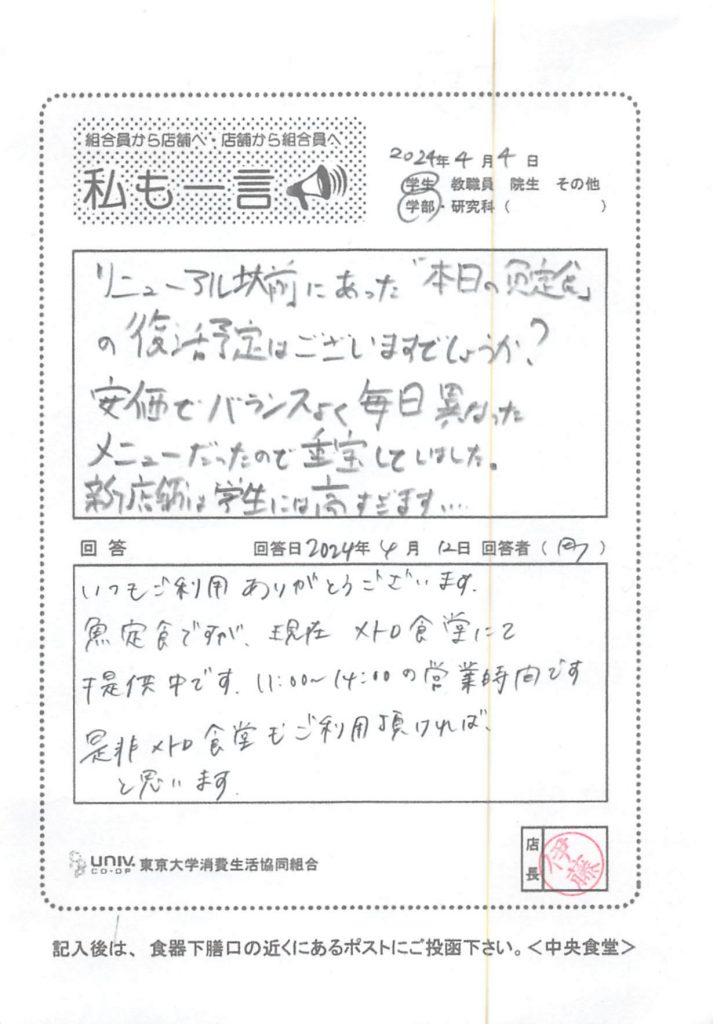 組合員から店舗へ・店舗から組合員へ
私も一言
2024年 4月 4日
学生 教職員 院生 その他
学部・研究科（ ）
リニューアル以前にあった「本日の魚定食」
の復活予定はございますでしょうか?
安価でバランスよく毎日異なった
メニューだったので重宝していました。
新店舗は学生には高すぎます…
回答 回答日2024年 4月 12日 回答者（ ）
いつもご利用ありがとうございます.
魚定食ですが、現在 メトロ食堂にて
提供中です. 11:00~14:00の営業時間です
是非メトロ食堂もご利用頂ければ、
と思います.
UNIV. CO-OP 東京大学消費生活協同組合
店長 伊藤
記入後は、食器下膳口の近くにあるポストにご投函下さい。＜中央食堂＞